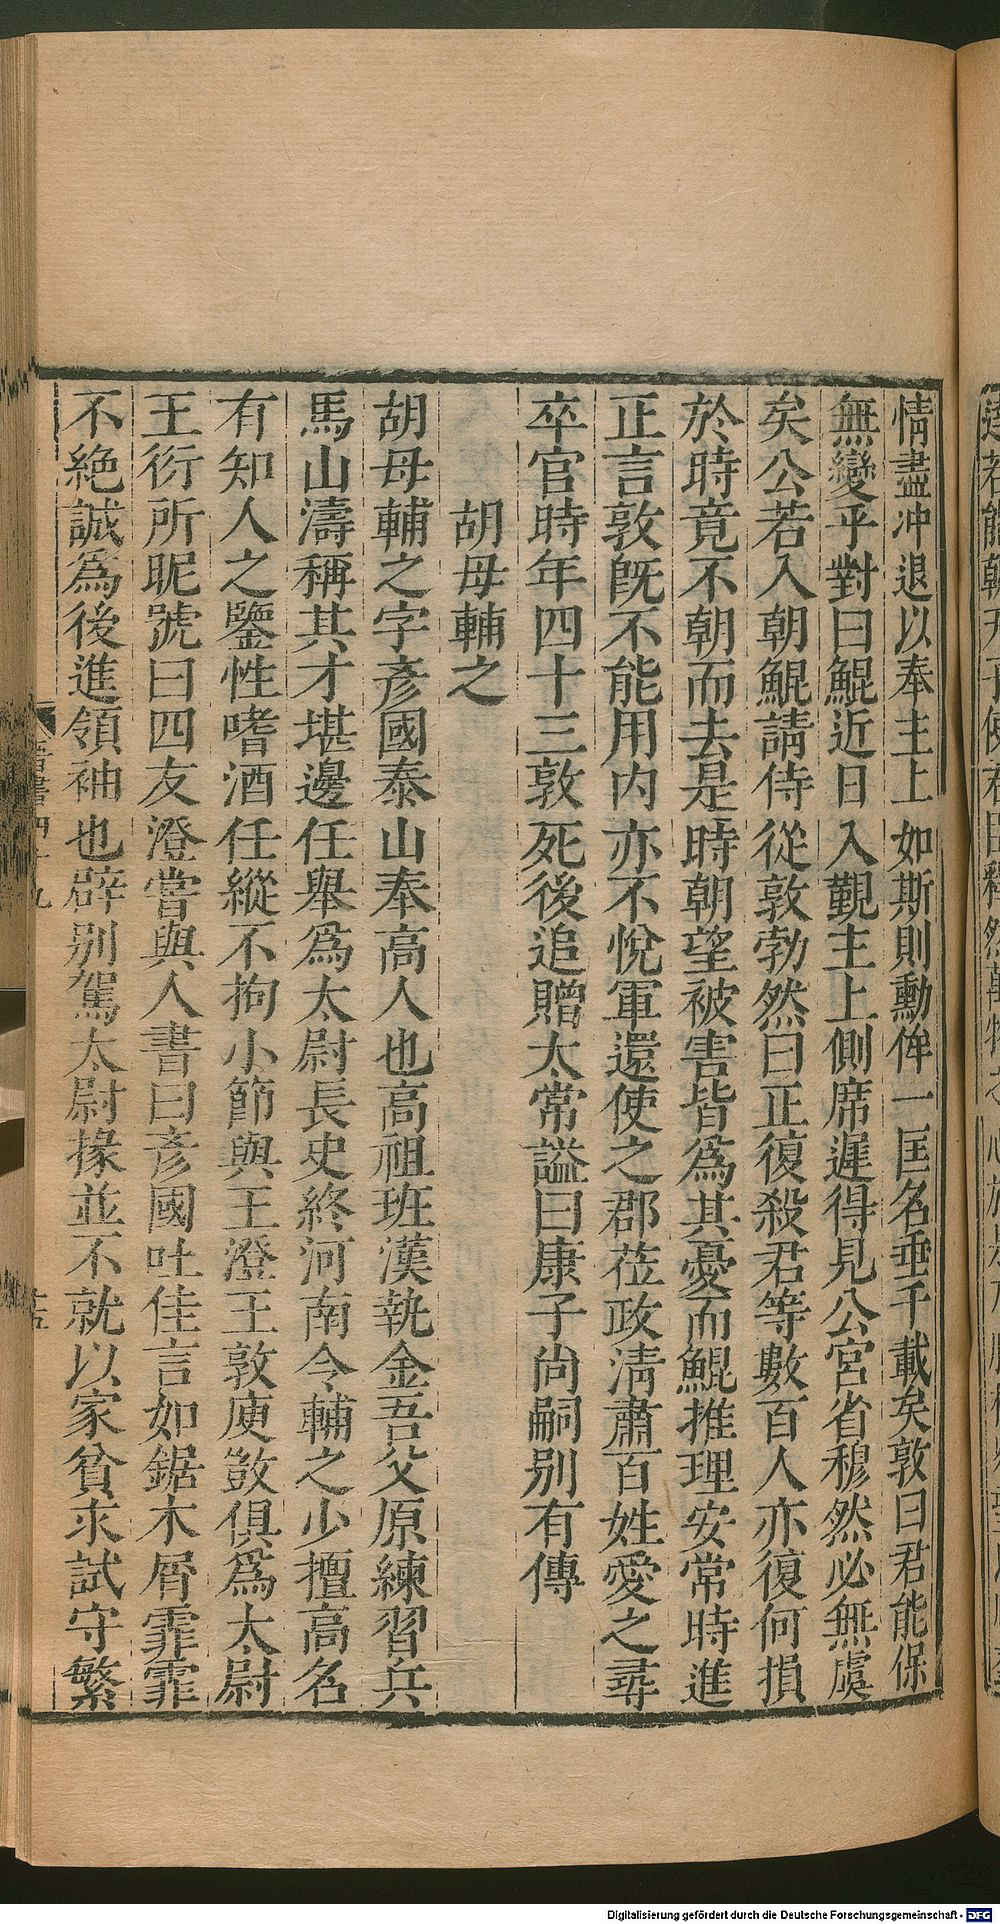 情盡冲退以奉主上如斯則勳侔一匡名垂千載矣敦曰君能保
無變乎對曰鯤近日入覲主上側席遲得見公宮省穆然必無虞
矣公若入朝鯤請侍從敦勃然曰正復殺君等數百人亦復何損
於時竟不朝而去是時朝望被害皆爲其憂而鯤推理安常時進
正言敦旣不能用內亦不悅軍還使之郡莅政清肅百姓愛之尋
卒官時年四十三敦死後追贈太常謚曰康子尚嗣别有傳
胡母輔之
胡母輔之字彥國泰山奉高人也高祖班漢執金吾父原練習兵
馬山濤稱其才堪邊任舉爲太尉長史終河南令輔之少擅高名
有知人之鑒性嗜酒任縱不拘小節與王澄王敦庾敳俱爲太尉
王衍所昵號曰四友澄嘗與人書曰彥國吐佳言如鋸木屑霏霏
不絕誠爲後進領袖也辟别駕太尉掾並不就以家貧求試守繁
Digitalisierung gefördert durch die Deutsche Forschungsgemeinschaft - DFG